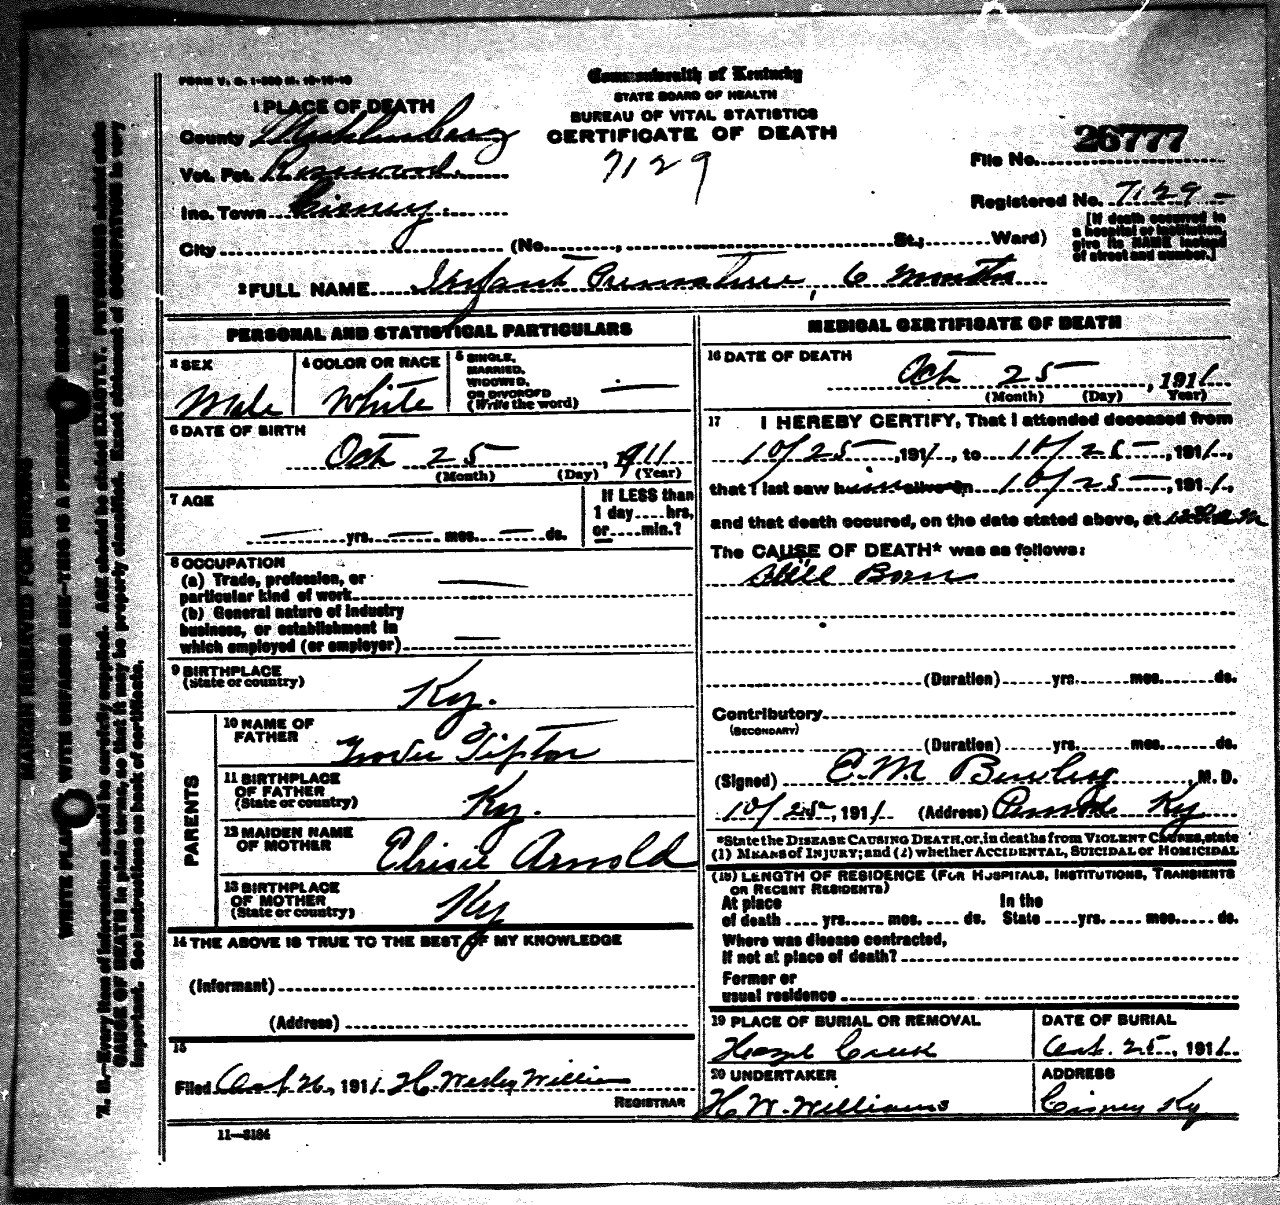 FORM V. S. 1-500 M. 10-10-10
Commonwealth of Kentucky
STATE BOARD OF HEALTH
BUREAU OF VITAL STATISTICS
CERTIFICATE OF DEATH
7129
1 PLACE OF DEATH
County Muhlenberg
Vot. Pct. Rosewood
Inc. Town Cisney
City (No. , St.; Ward)
File No. 26777
Registered No. 7129
[If death occurred in
a hospital or institution,
give its NAME instead
of street and number.]
2 FULL NAME Infant Premature, 6 months
PERSONAL AND STATISTICAL PARTICULARS
3 SEX
Male
4 COLOR OR RACE
White
5 SINGLE,
MARRIED,
WIDOWED,
OR DIVORCED
(Write the word)
6 DATE OF BIRTH
Oct 25, 1911
(Month) (Day) (Year)
7 AGE
yrs. mos. ds.
If LESS than
1 day....hrs,
or....min.?
8 OCCUPATION
(a) Trade, profession, or
particular kind of work
(b) General nature of industry
business, or establishment in
which employed (or employer)
9 BIRTHPLACE
(State or country)
Ky.
PARENTS
10 NAME OF
FATHER
Tipton
11 BIRTHPLACE
OF FATHER
(State or country)
Ky.
12 MAIDEN NAME
OF MOTHER
Elvisie Arnold
13 BIRTHPLACE
OF MOTHER
(State or country)
Ky
14 THE ABOVE IS TRUE TO THE BEST OF MY KNOWLEDGE
(Informant)
(Address)
15
Filed Oct 26, 1911 H. Wesley Williams
REGISTRAR
11—3184
MEDICAL CERTIFICATE OF DEATH
16 DATE OF DEATH
Oct 25, 1911
(Month) (Day) Year)
17 I HEREBY CERTIFY, That I attended deceased from
10/25, 1911, to 10/25, 1911,
that I last saw him alive on 10/25, 1911,
and that death occured, on the date stated above, at
The CAUSE OF DEATH* was as follows:
Still Born
(Duration) yrs. mos. ds.
Contributory
(SECONDARY)
(Duration) yrs. mos. ds.
(Signed) E. M. , M. D.
10/25, 1911 (Address) Ky
*State the DISEASE CAUSING DEATH, or, in deaths from VIOLENT CAUSES, state
(1) MEANS of INJURY; and (2) whether ACCIDENTAL, SUICIDAL or HOMICIDAL
(18) LENGTH OF RESIDENCE (FOR HOSPITALS, INSTITUTIONS, TRANSIENTS
OR RECENT RESIDENTS)
At place
of death .... yrs. mos. ds.
In the
State ....yrs. mos. ds.
Where was disease contracted,
If not at place of death?
Former or
usual residence
19 PLACE OF BURIAL OR REMOVAL
Hazel Creek
DATE OF BURIAL
Oct. 25, 1911.
20 UNDERTAKER
H. W. Williams
ADDRESS
Cisney Ky
MARGIN RESERVED FOR BINDING
WRITE PLAINLY WITH UNFADING INK—THIS IS A PERMANENT RECORD
N. B.—Every item of information should be carefully supplied. AGE should be stated EXACTLY. PHYSICIANS should state
CAUSE OF DEATH in plain terms, so that it may be properly classified. Exact statement of OCCUPATION is very
important. See instructions on back of certificate.